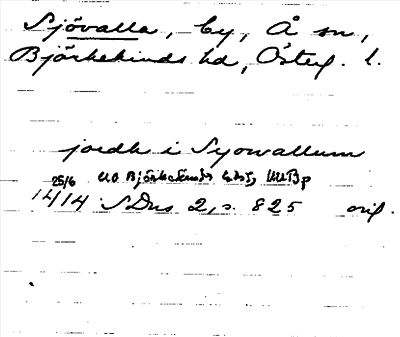 Sjövalla, by, Å sn,
Björkekinds hd, Österg. l.
jordh i Syowallum
25/6 uo Björkekinds
14/14 SDns 2, s. 825 orig.